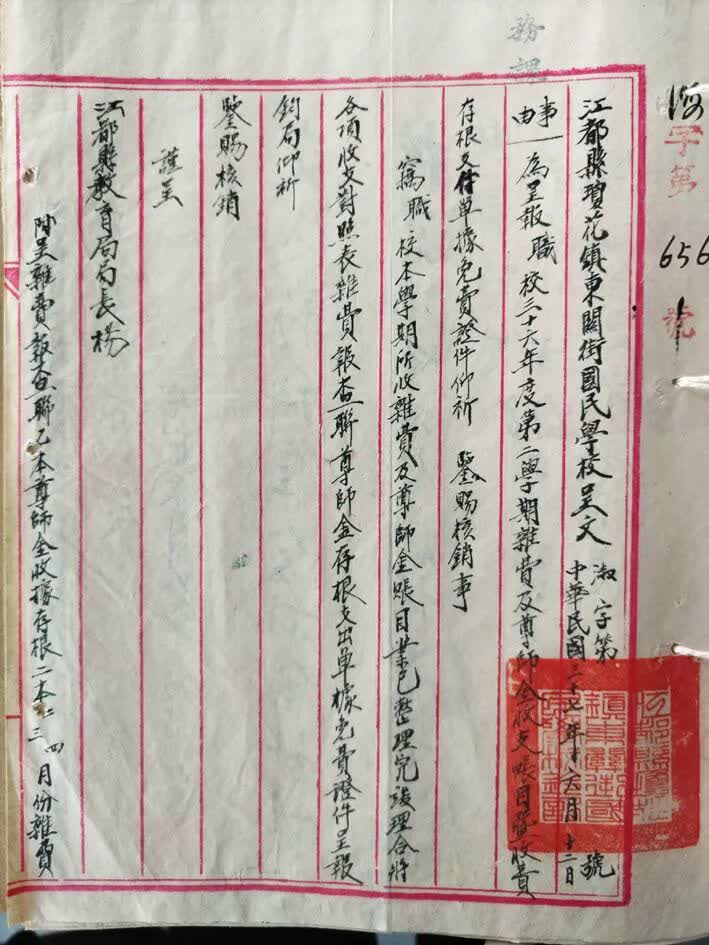 務課
字第
656
號
江都縣瓊花鎮東關街國民學校呈文
淑字第 號
中華民國三十七年 六月十二日
事由
為呈報職校三十六年度第二學期雜費及尊師金收支賬目暨收費
存根支付單據免費證件仰祈 鑒賜核銷事
竊職校本學期所收雜費及尊師金賬目業已整理完竣理合將
各項收支對照表雜費報查聯尊師金存根支出單據免費證件呈報
鈞局仰祈
鑒賜核銷
謹呈
江都縣教育局局長楊
附呈雜費報查聯乙本尊師金收據存根二本二三四月份雜費